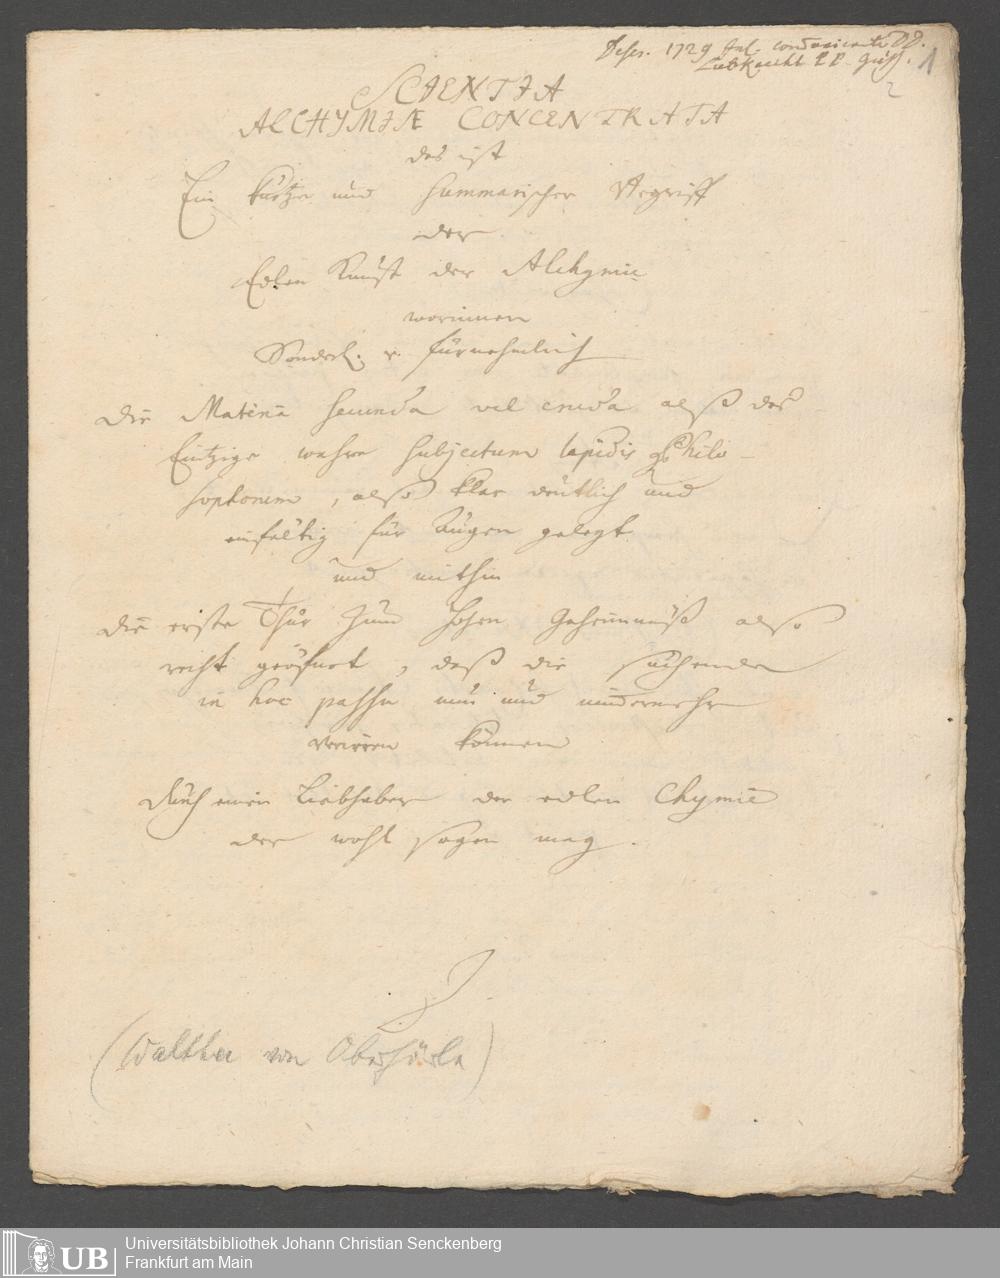 Descr. 1729 Jul. communicante DD.
Liebknecht P.P. Giess. 1
2
SCIENTIA
ALCHYMIÆ CONCENTRATA
das ist
Ein kurtzer und summarischer Begriff
der
Edlen Kunst der Alchymie
worinnen
Sonderl. v. fürnehmlich
die Materia secunda vel cruda alß das
Eintzige wahre subjectum lapidis Philo-
sophorum, also klar deutlich und
einfältig für Augen gelegt
und mithin
die erste Thür zum hohen Geheimnüß also
recht geöfnet, daß die suchende
in hoc passu nun und nimmermehr
verirren können
durch einen Liebhaber der edlen Chymie
der wohl sagen mag.
(Walther von
Universitätsbibliothek Johann Christian Senckenberg
UB Frankfurt am Main